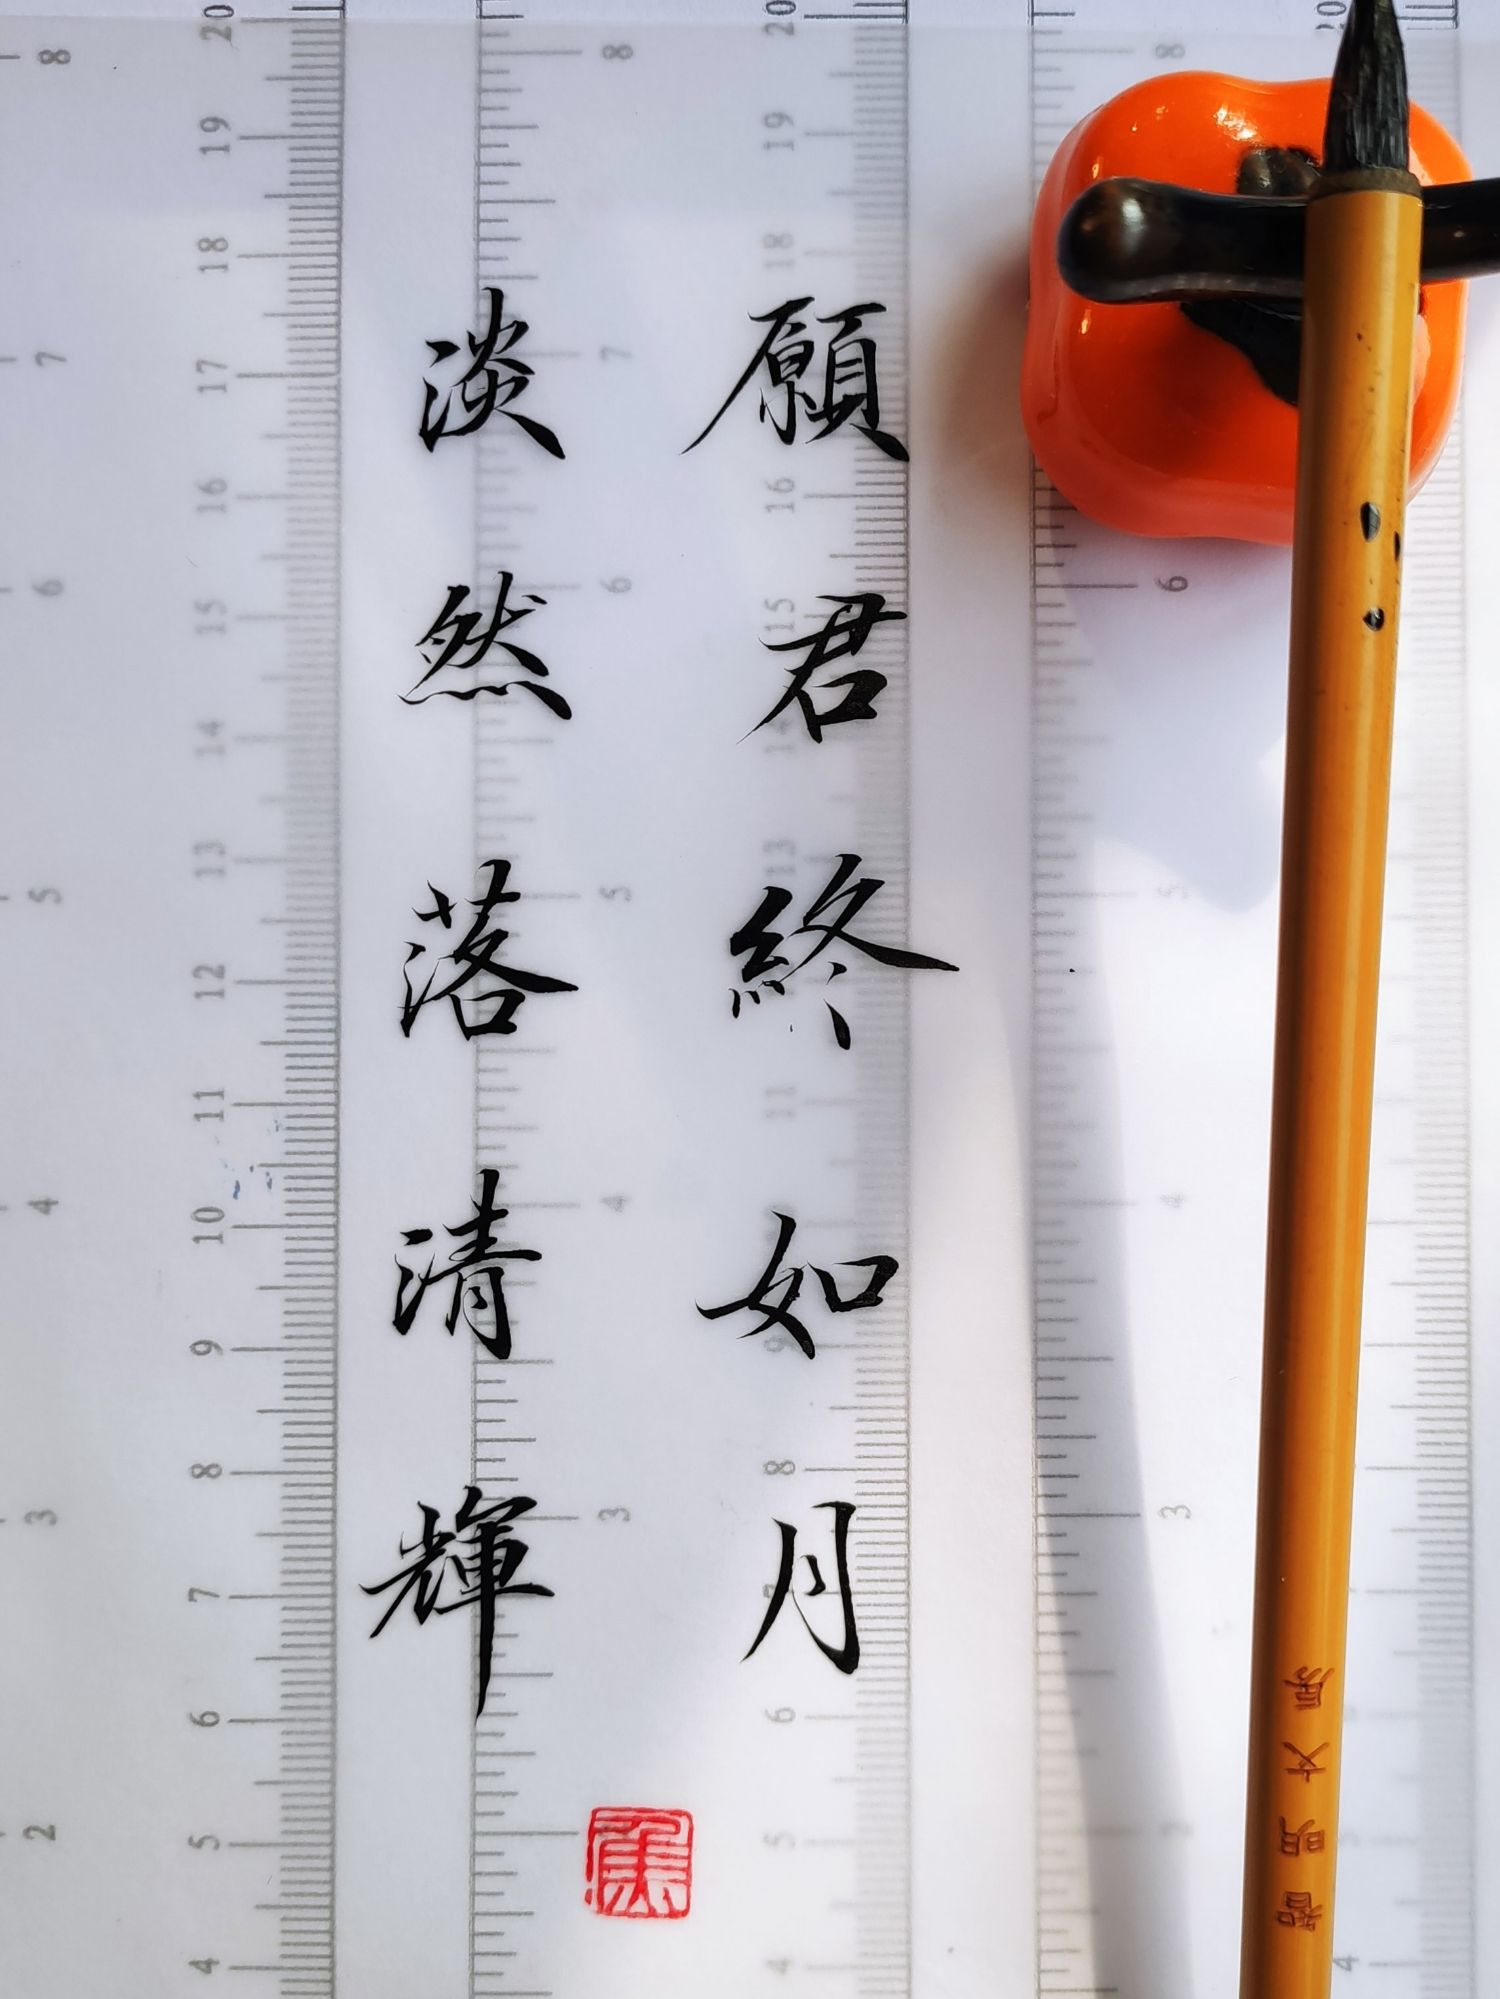 願君終如月
淡然落清輝
20
19
18
17
16
15
14
13
12
11
10
9
8
7
6
5
4
8
7
6
5
4
3
2
8
7
6
5
4
3
20
19
18
16
15
14
13
11
9
8
7
6
5
4
8
6
5
4
3
2
智明文房